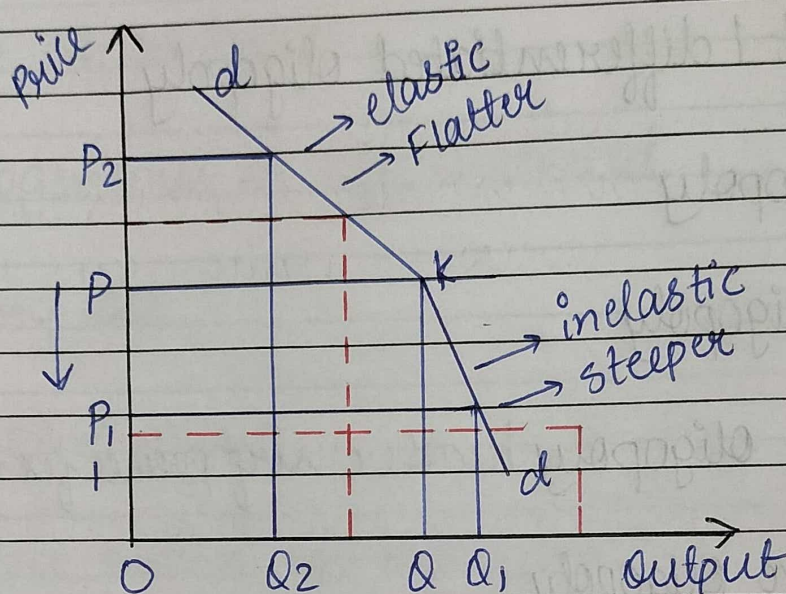 Price
d
elastic
Flatter
P2
P
K
inelastic
steeper
P1
d
O
Q2
Q
Q1
Output